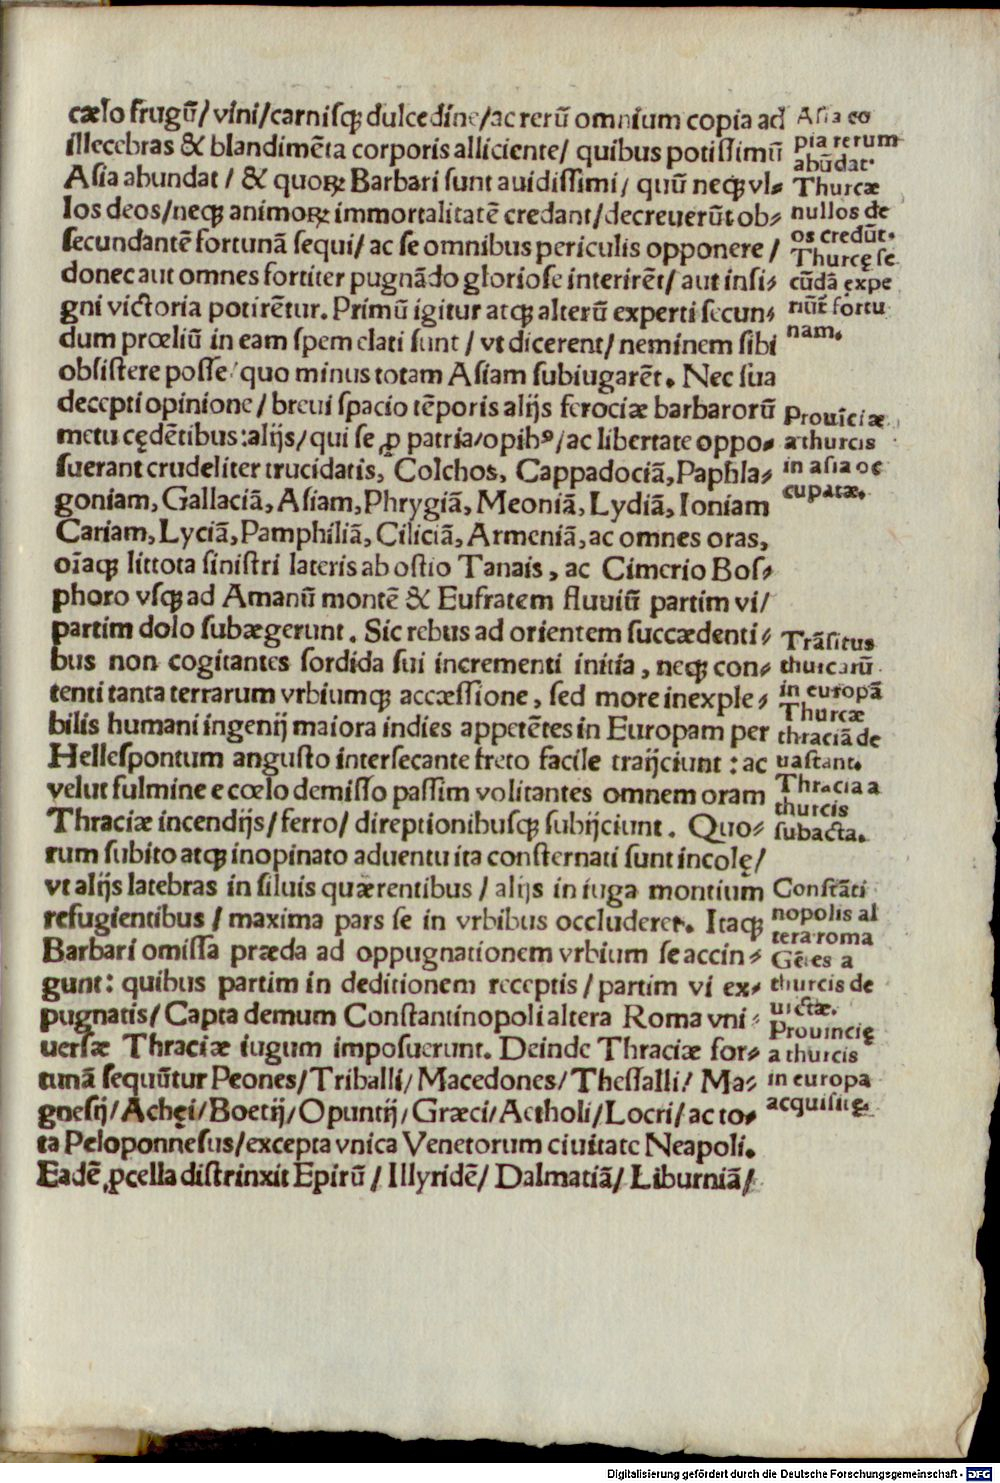 cælo frugū/ vini/carnisqꝫ dulcedine/ac rerū omnium copia ad
illecebras & blandimēta corporis alliciente/ quibus potissimū
Asia abundat/ & quoꝝ Barbari sunt auidissimi/ quū neqꝫ vl⸗
los deos/neqꝫ animoꝝ immortalitatē credant/decreuerūt ob⸗
secundantē fortunā sequi/ ac se omnibus periculis opponere/
donec aut omnes fortiter pugnādo gloriose interirēt/ aut insi⸗
gni victoria potirētur. Primū igitur atqꝫ alterū experti secun⸗
dum prœliū in eam spem elati sunt/ vt dicerent/ neminem sibi
obsistere posse/ quo minus totam Asiam subiugarēt. Nec sua
decepti opinione/ breui spacio tēporis alijs ferociæ barbarorū
metu cędētibus:alijs/ qui se ꝓ patria/opibꝰ/ac libertate oppo⸗
suerant crudeliter trucidatis, Colchos, Cappadociā,Paphla⸗
goniam, Gallaciā, Asiam,Phrygiā, Meoniā, Lydiā, Ioniam
Cariam, Lyciā,Pamphiliā, Ciliciā, Armeniā, ac omnes oras,
oīaqꝫ littota sinistri lateris ab ostio Tanais, ac Cimerio Bos⸗
phoro vsqꝫ ad Amanū montē & Eufratem fluviū partim vi/
partim dolo subægerunt. Sic rebus ad orientem succædenti⸗
bus non cogitantes sordida sui incrementi initia, neqꝫ con⸗
tenti tanta terrarum vrbiumqꝫ accæssione, sed more inexple⸗
bilis humani ingenij maiora indies appetētes in Europam per
Hellespontum angusto intersecante freto facile traijciunt: ac
velut fulmine e cœlo demisso passim volitantes omnem oram
Thraciæ incendijs/ferro/ direptionibusqꝫ subijciunt. Quo⸗
rum subito atqꝫ inopinato aduentu ita consternati sunt incolę/
vt alijs latebras in siluis quærentibus/ alijs in iuga montium
refugientibus/ maxima pars se in vrbibus occluderet. Itaqꝫ
Barbari omissa præda ad oppugnationem vrbium se accin⸗
gunt: quibus partim in deditionem receptis/partim vi ex⸗
pugnatis/ Capta demum Constantinopoli altera Roma vni⸗
uersæ Thraciæ iugum imposuerunt. Deinde Thraciæ for⸗
tunā sequūtur Peones/Triballi/ Macedones/Thessalli/ Ma⸗
gnesij/Achęi/Boetij/Opuntij/Græci/Aetholi/Locri/ac to⸗
ta Peloponnesus/excepta vnica Venetorum ciuitate Neapoli.
Eadē ꝓcella distrinxit Epirū/ Illyridē/ Dalmatiā/ Liburniā/
Asia co
pia rerum
abūdat.
Thurcæ
nullos de
os credūt.
Thurcę se
cūdā expe
riūt fortu
nam.
Prouīciæ
a thurcis
in asia oc
cupatæ.
Trāsitus
thurcarū
in europā
Thurcæ
thraciā de
uastant.
Thracia a
thurcis
subacta.
Constāti
nopolis al
tera roma
Gētes a
thurcis de
uictæ.
Prouincię
a thurcis
in europa
acquisitę.
Digitalisierung gefördert durch die Deutsche Forschungsgemeinschaft - DFG